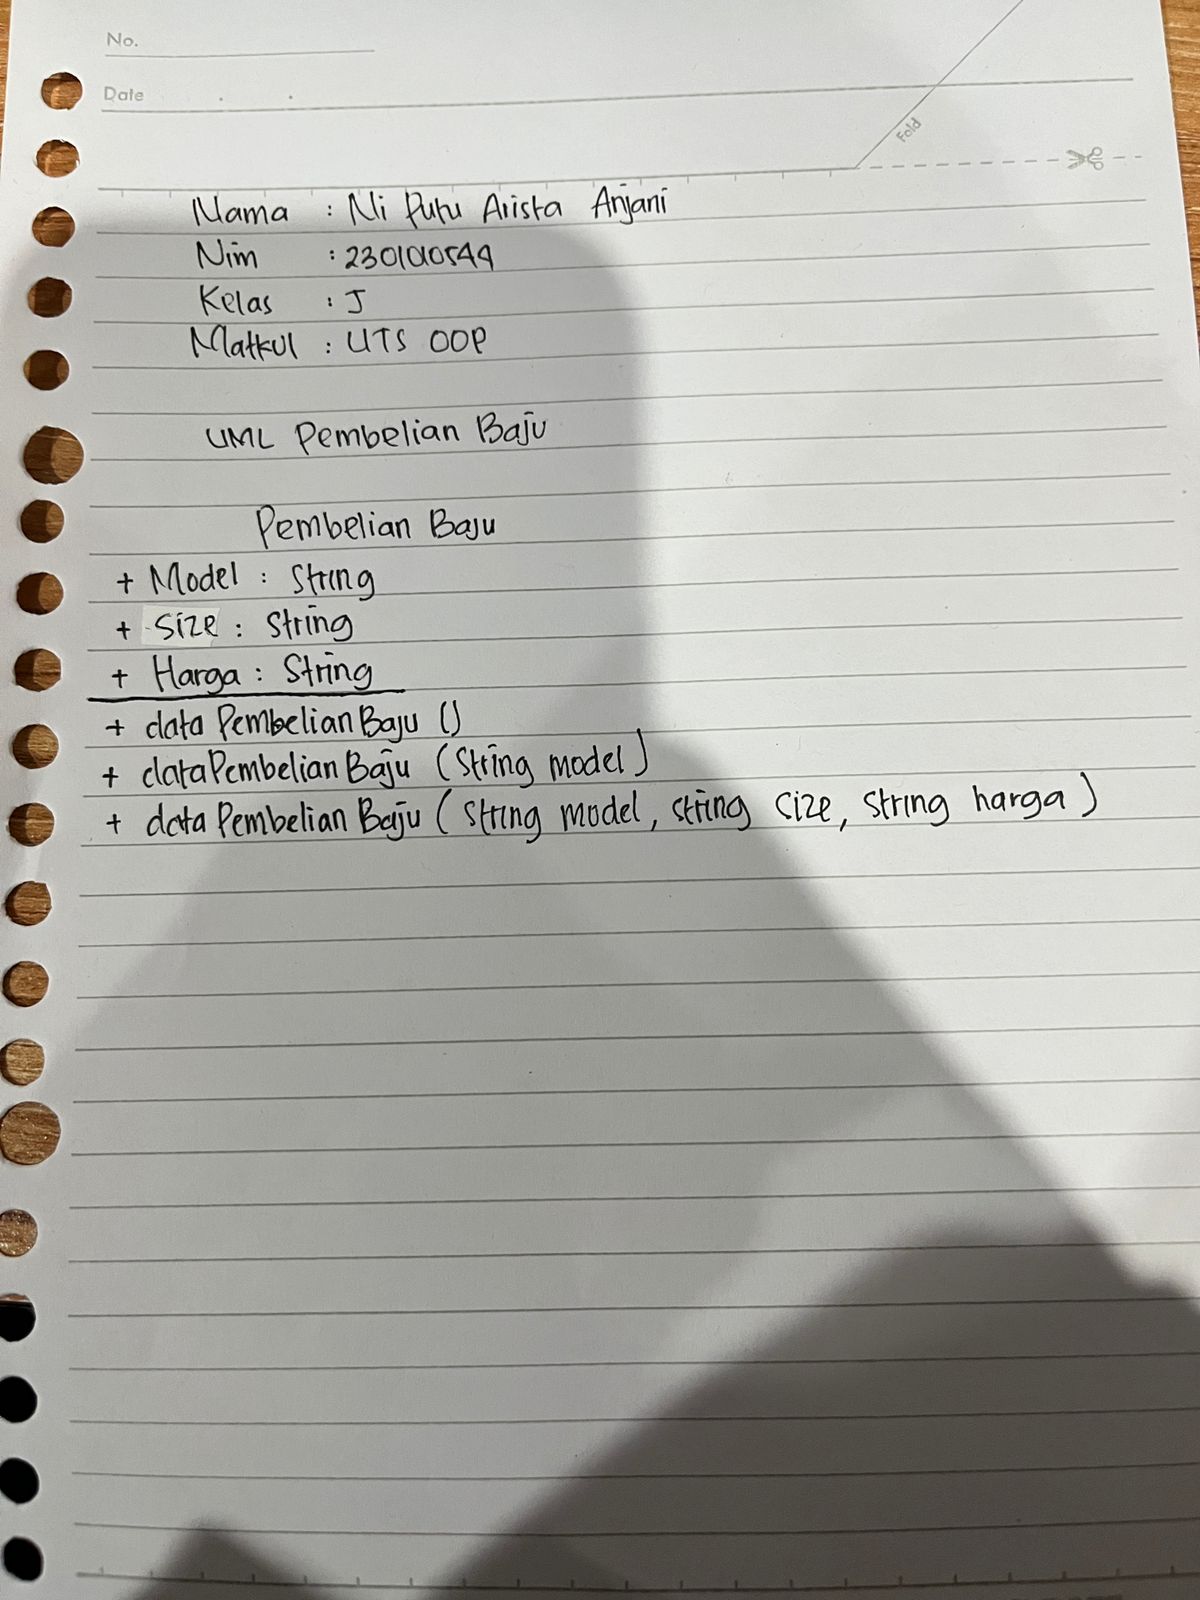 No.
Date
Fold
Nama : Ni Putu Arista Anjani
Nim : 230101054​4
Kelas : J
Matkul : UTS OOP
UML Pembelian Baju
Pembelian Baju
+ Model : String
+ Size : String
+ Harga : String
+ data Pembelian Baju ()
+ dataPembelian Baju (String model)
+ data Pembelian Baju (String model, string size, string harga)